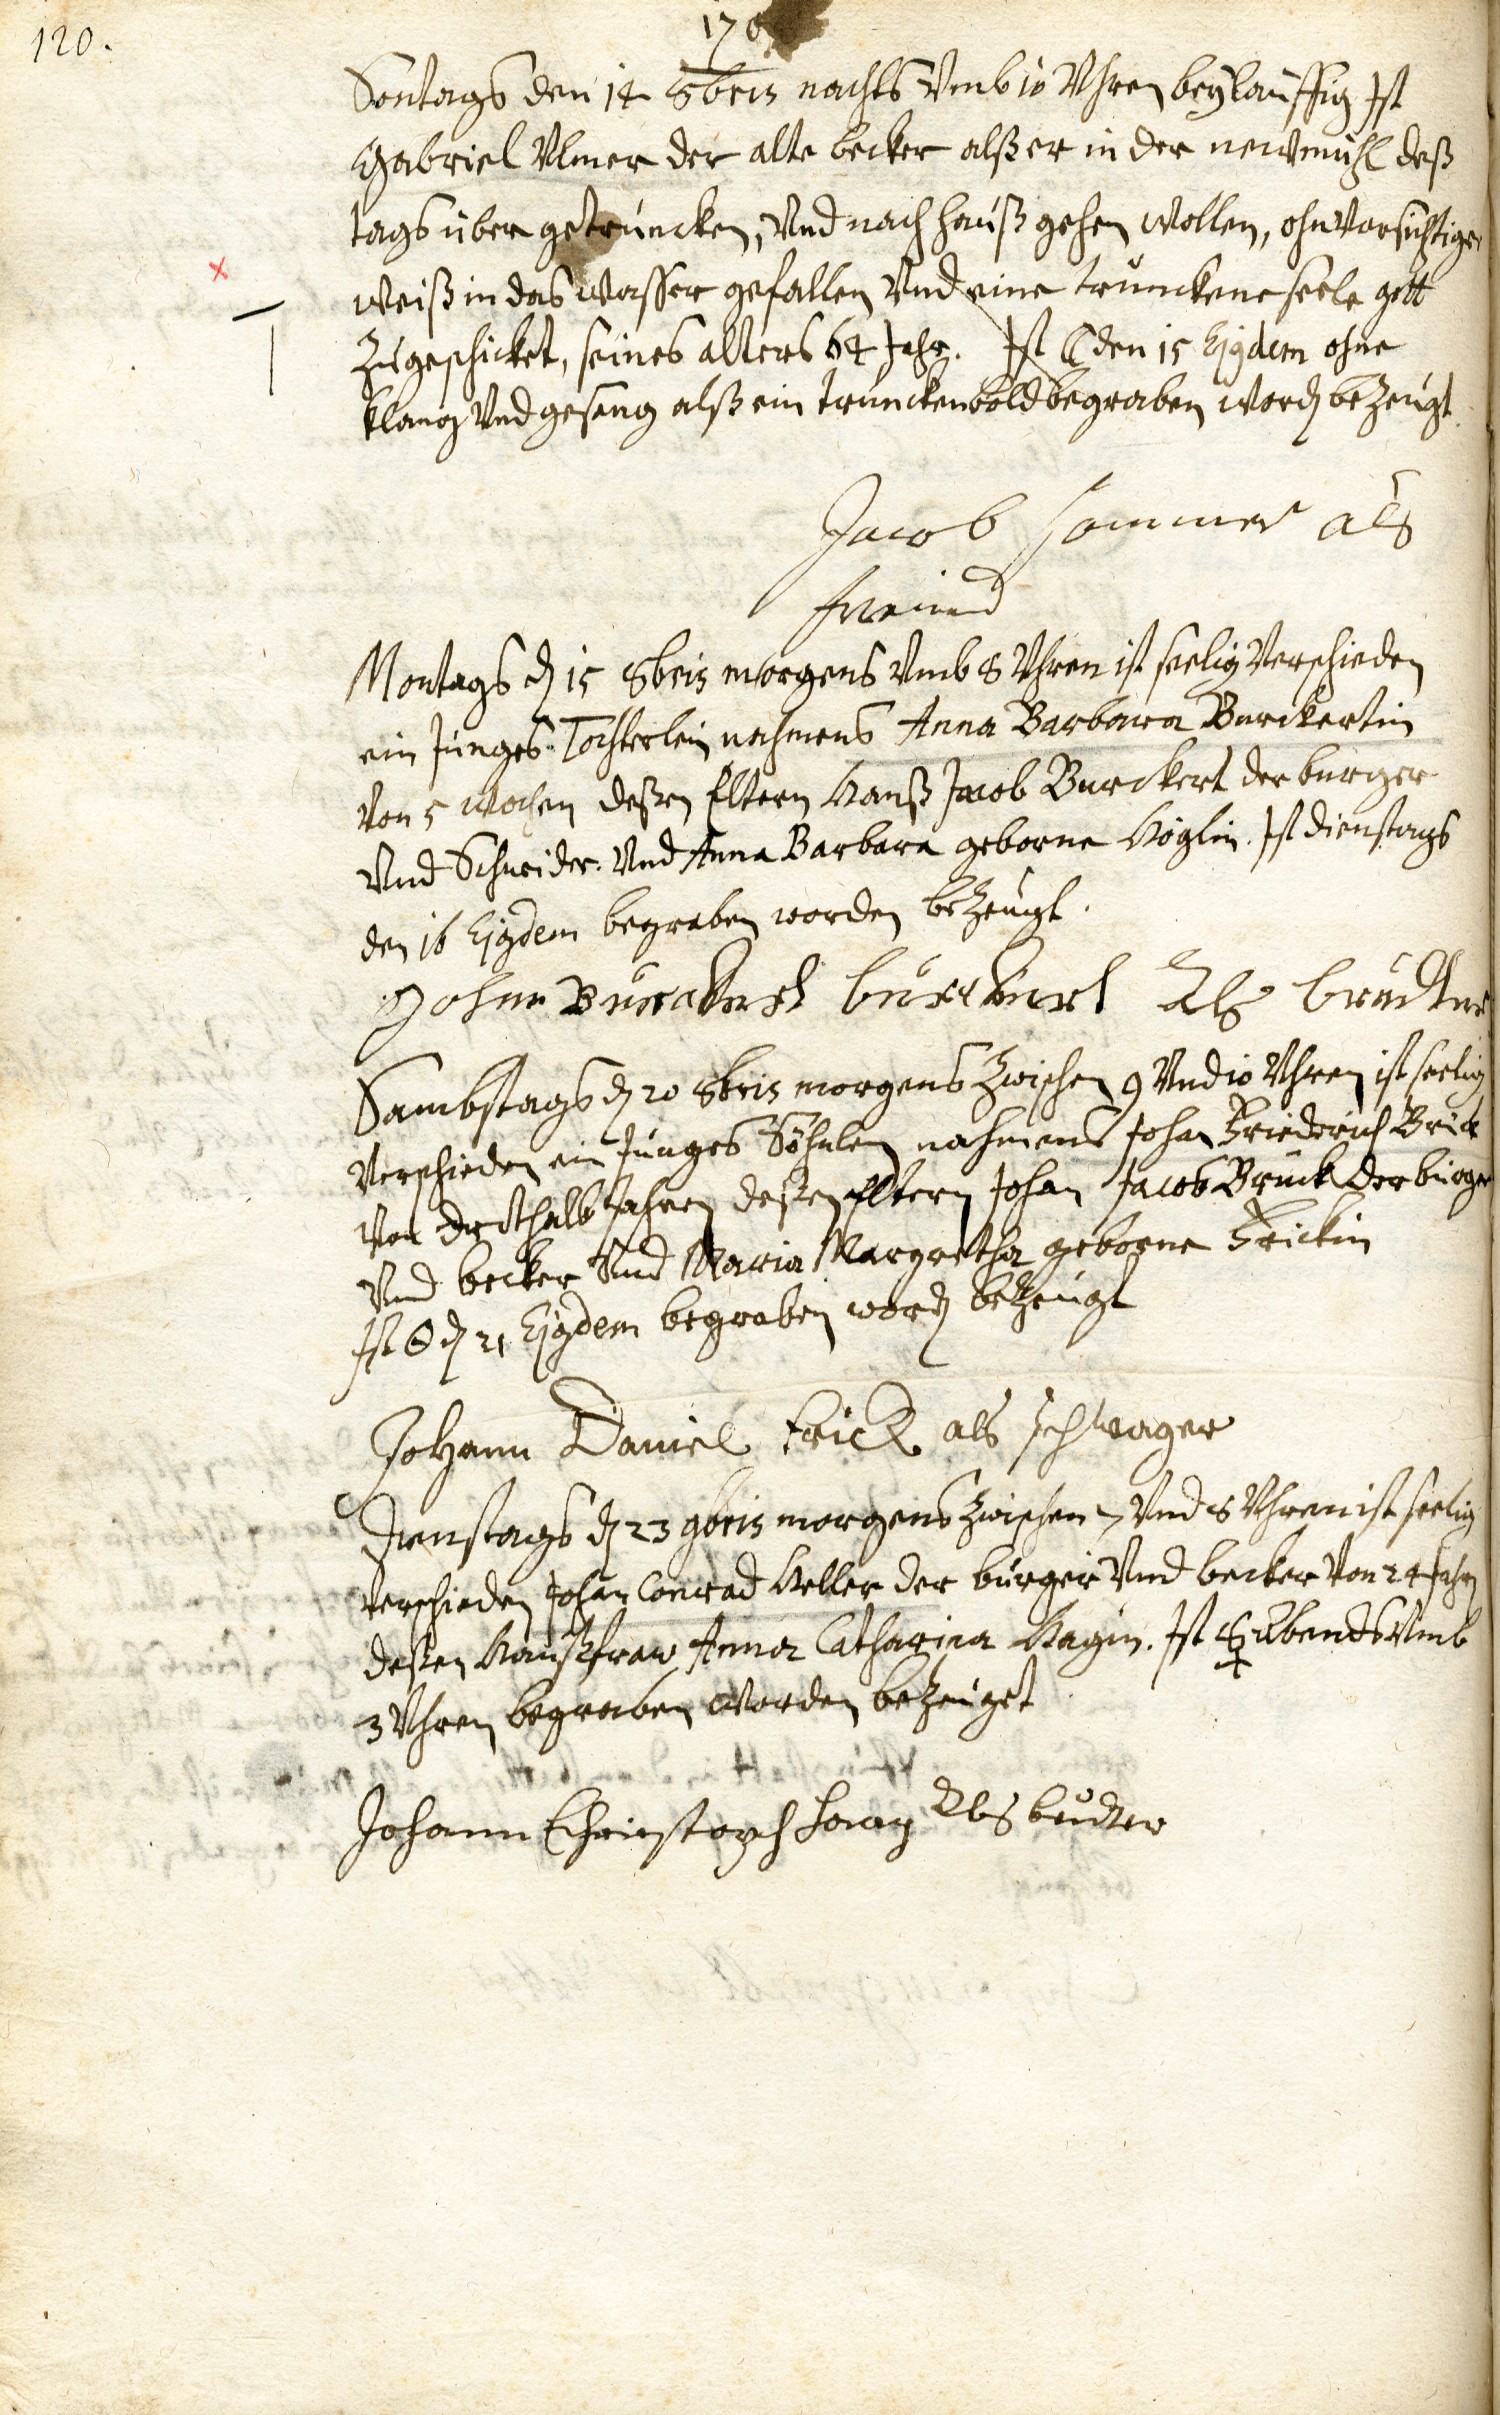 120.
170
Sontags den 14 8bris nachts Vmb 10 Vhren beyläuffig Jst
Gabriel Vlmer der alte becker alß er in der newmühl deß
tags über getruncken, Vnd nach hauß gehen wollen, ohnvorsichtiger
weiß in das wasser gefallen Vnd eine trunckene seele gott
Zugeschicket, seines alters 64 Jahr. Jst ☾ den 15 Ejgdem ohne
klang Vnd gesang alß ein trunckenbold begraben word bezeugt.
Jacob Sommer als
freind
Montags d 15 8bris morgens Vmb 8 Vhren ist seelig Verschieden
ein Junges Töchterlein nahmens Anna Barbara Burckertin
Von 5 wochen deßen Eltern Hanß Jacob Burckert der burger
Vnd Schneider. Vnd Anna Barbara geborne Höglin. Jst dienstags
den 16 Ejgdem begraben worden bezeugt.
Johann burckhart Als bruder
Sambstags d 20 8bris morgens Zwischen 9 Vnd 10 Vhren ist seelig
Verschieden ein Junges Söhnlen nahmens Johan Friederich Brück
Von dritthalb Jahren deßen Eltern Johan Jacob Brück der bürger
Vnd becker Vnd Maria Margretha geborne Frickin
Jst ☉ d 21 Ejgdem begraben word bezeugt
Johann Daniel frick als schwager
Dienstags d 23 8bris morgens Zwischen 7 Vnd 8 Vhren ist seelig
Verschieden Johan Conrad Heller der bürger Vnd becker Von 24 Jahr
deßen Haußfraw Anna Catharina Hagin. Jst ☿ Abends Vmb
3 Vhren begraben worden bezeuget
Johann Christoph Haag Als bruder